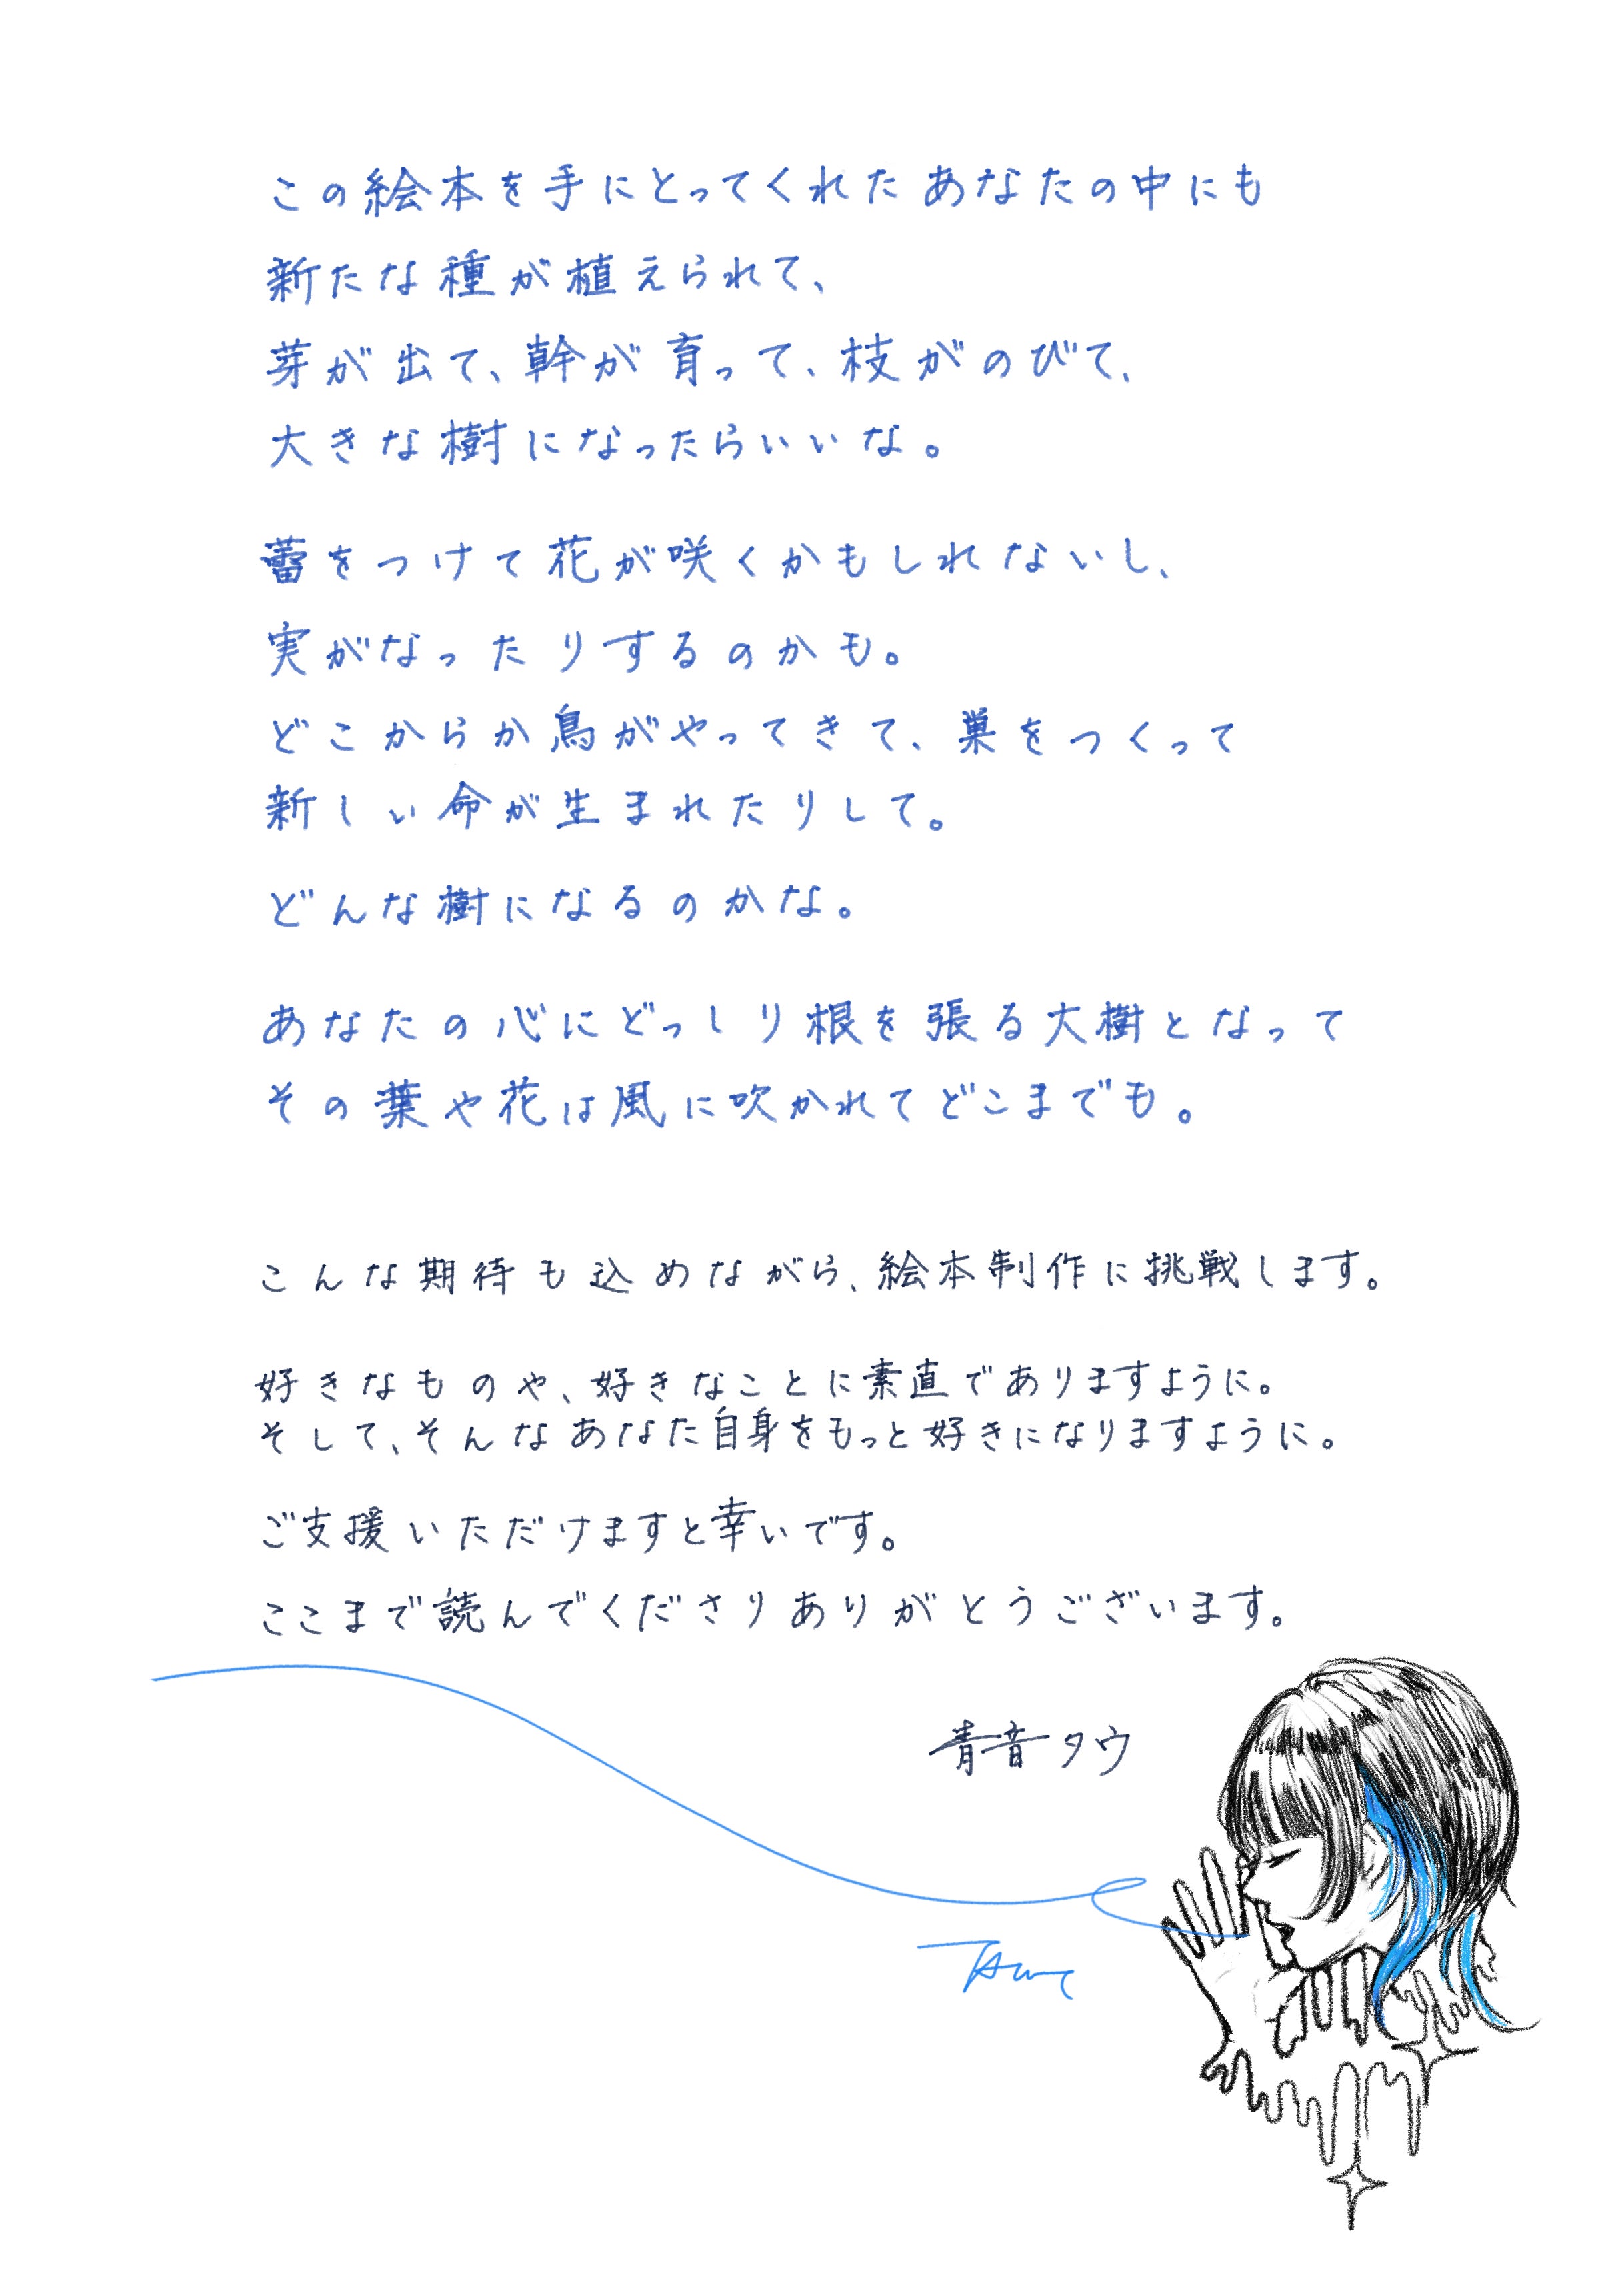 この絵本を手にとってくれたあなたの中にも
新たな種が植えられて、
芽が出て、幹が育って、枝がのびて、
大きな樹になったらいいな。
蕾をつけて花が咲くかもしれないし、
実がなったりするのかも。
どこからか鳥がやってきて、巣をつくって
新しい命が生まれたりして。
どんな樹になるのかな。
あなたの心にどっしり根を張る大樹となって
その葉や花は風に吹かれてどこまでも。
こんな期待も込めながら、絵本制作に挑戦します。
好きなものや、好きなことに素直でありますように。
そして、そんなあなた自身をもっと好きになりますように。
ご支援いただけますと幸いです。
ここまで読んでくださりありがとうございます。
青音タウ